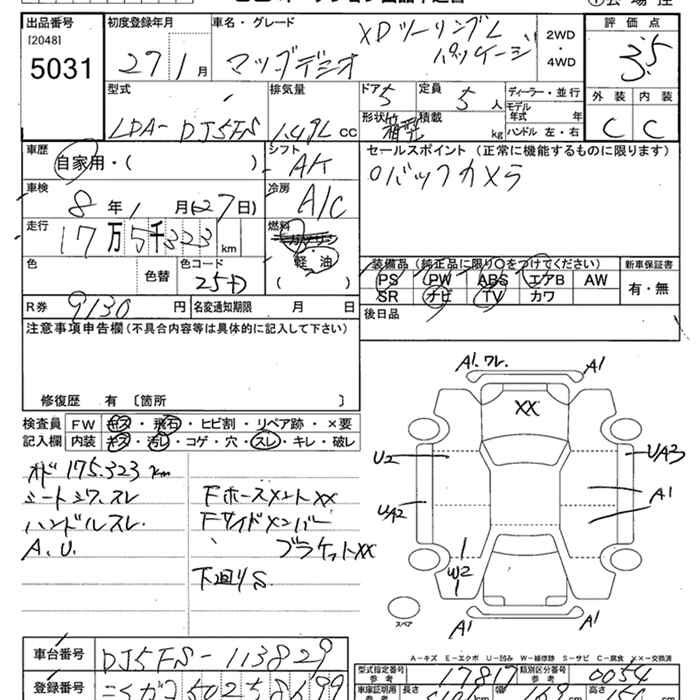 出品番号
[2048]
5031
初度登録年月
27 1 月
車名・グレード
XDツーリングL
パッケージ
マツダデミオ
2WD
・
4WD
評価点
3.5
型式
LDA-DJ5FS
排気量
1.49L cc
ドア 5
定員 5 人
形状 箱型
積載 kg
ディーラー・並行
モデル
年式 年
ハンドル 左・右
外装 内装
C C
車歴
自家用・( )
シフト
A/T
セールスポイント (正常に機能するものに限ります)
○バックカメラ
車検
8 年 1 月(27日)
冷房
A/C
走行
17万5千323 km
燃料
軽油
( )
色
色替
色コード
25D
装備品 (純正品に限り○をつけてください)
新車保証書
PS PW ABS エアB AW
SR ナビ TV カワ
有・無
R券 9130 円
名変通知期限 月 日
後日品
注意事項申告欄 (不具合内容等は具体的に記入して下さい)
修復歴 有 〔箇所 〕
検査員
記入欄
FW キズ・飛石・ヒビ割・リペア跡・×要
内装 キズ・汚レ・コゲ・穴・スレ・キレ・破レ
オド175.323km
シートシワ、スレ
ハンドルスレ.
A.U.
Fホースメント××
Fサイドメンバー
ブラケット××
下廻りS
A1.ワレ. A1
XX
U2
U/A3
U/A2
A1
W2
A1 A1
スペア
A-キズ E-エクボ U-凹み W-補修跡 S-サビ C-腐食 ××-交換済
車台番号 DJ5FS-113829
登録番号
型式指定番号
参考
17817
類別区分番号
参考
0054
車庫証明用
参考
長さ
幅
高さ